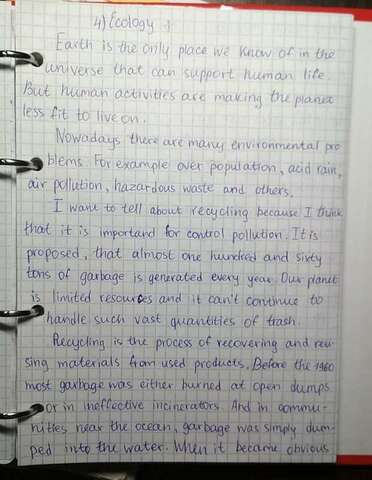 4) Ecology 1
Earth is the only place we know of in the
universe that can support human life.
But human activities are making the planet
less fit to live on.
Nowadays there are many environmental pro
blems. For example over population, acid rain,
air pollution, hazardous waste and others.
I want to tell about recycling because I think
that it is important for control pollution. It is
proposed, that almost one hundred and sixty
tons of garbage is generated every year. Our planet
is limited resources and it can't continue to
handle such vast quantities of trash.
Recycling is the process of recovering and reu-
sing materials from used products. Before the 1960
most garbage was either burned at open dumps
or in ineffective incinerators. And in commu-
nities near the ocean, garbage was simply dum-
ped into the water. When it became obvious